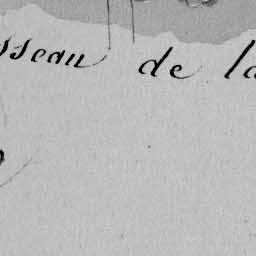 sseau de la